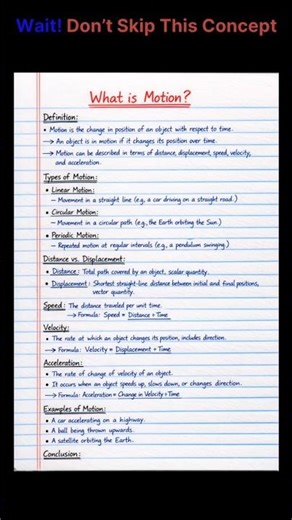 Wait! Don't Skip This Concept
What is Motion?
Definition:
• Motion is the change in position of an object with respect to time.
→ An object is in motion if it changes its position over time.
→ Motion can be described in terms of distance, displacement, speed, velocity,
and acceleration.
Types of Motion:
• Linear Motion:
– Movement in a straight line (e.g., a car driving on a straight road.)
• Circular Motion:
– Movement in a circular path (e.g., the Earth orbiting the Sun.)
• Periodic Motion:
– Repeated motion at regular intervals (e.g., a pendulum swinging.)
Distance vs. Displacement:
• Distance: Total path covered by an object, scalar quantity.
• Displacement: Shortest straight-line distance between initial and final positions,
vector quantity.
Speed: The distance traveled per unit time.
→ Formula: Speed = Distance ÷ Time
Velocity:
• The rate at which an object changes its position, includes direction.
→ Formula: Velocity = Displacement ÷ Time
Acceleration:
• The rate of change of velocity of an object.
• It occurs when an object speeds up, slows down, or changes direction.
→ Formula: Acceleration = Change in Velocity ÷ Time
Examples of Motion:
• A car accelerating on a highway.
• A ball being thrown upwards.
• A satellite orbiting the Earth.
Conclusion: